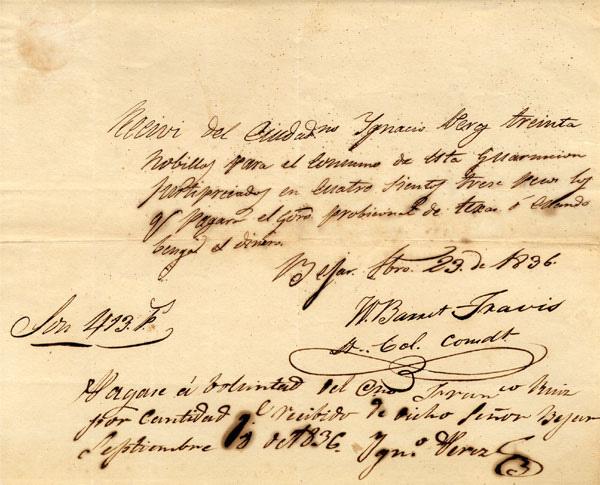 Recivi del Ciudadno Ygnacio Perez treinta
nobillos para el Consumo de esta Guarnicion
justipreciados en Cuatro Sientos trese pesos los
q pagara el Gōno provicional de texas ó cuando
benga el dinero.
Bejar. Fbro. 23. de 1836.
W Barret Travis
Lt. Col. comdt
Son 413.Ps
Pagase á boluntad del Cno Franco Ruiz
por cantidad recibido de dicho Señor Bejar
Septiembre de 1836. Ygno Perez